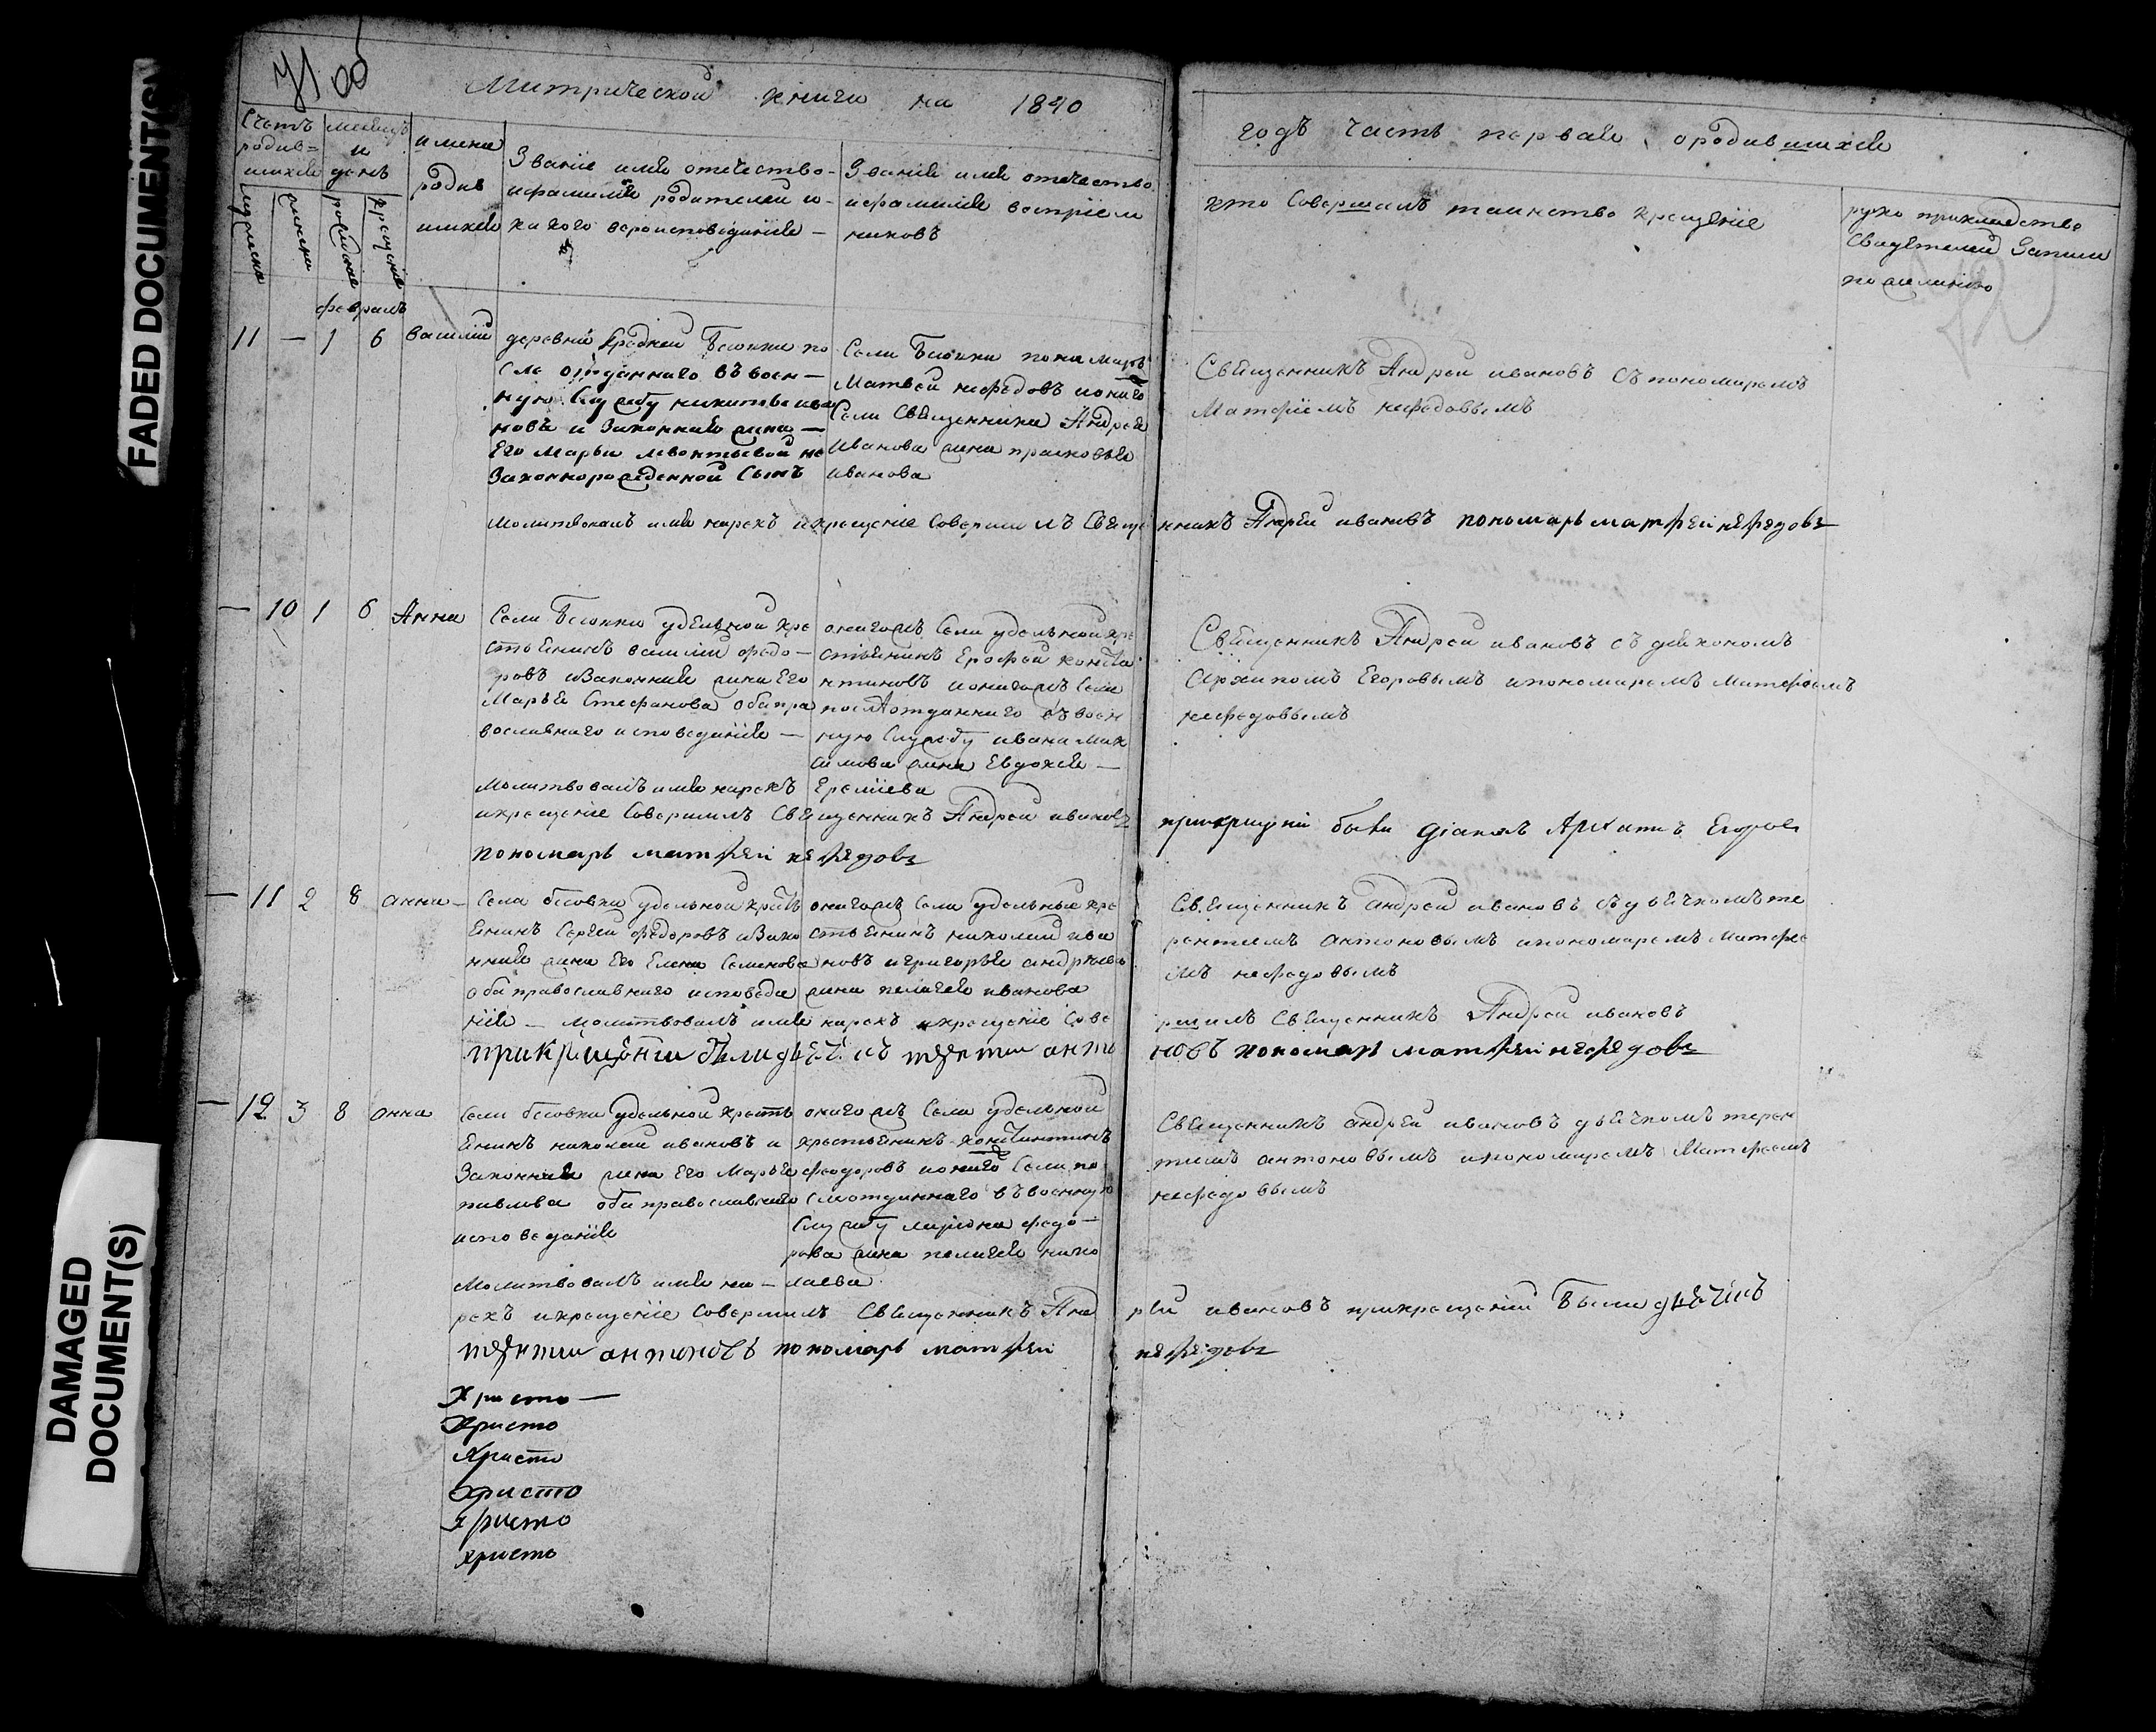 FADED DOCUMENT(S)
DAMAGED
DOCUMENT(S)
Митрической книги на 1840
годъ часть первая о родившихся
Счетъ
родив=
шихся
мѣсяцъ
и
день
имена
родив
шихся
Званіе имя отечество
и фамилія родителей и
какого вероисповеданія —
Званія имя отечество
и фамилія воспріем
никовъ
кто Совершалъ таинство крещеніе
руко прикладство
Свидѣтелей Записи
по желанію
мужеска
женска
рожденія
крещенія
февраль
11 — 1 6 василій
деревни Средней Бесовки по
сле отданного въ воен —
ную Службу никиты ива
нова и Законная жена —
Его Марьи леонтьевой не
Законнорожденной Сынъ
Села Бесовки пономарь
Матвей нефедовъ и онаго
Села Священника Андрея
Иванова жена прасковья
иванова
Священникъ Андреи ивановъ съ пономаремъ
Матфіемъ нефедовымъ
Молитвовалъ имя нарекъ и крещеніе Совершилъ Священникъ Андреи ивановъ пономарь матфеи нефедовъ
— 10 1 6 Анна
Села Бесовки удельной кре
стьянинъ василіи федо —
ровъ и Законная жена Его
Марья Стефанова оба пра
вославнаго исповеданія —
онагожъ Села удельной кре
стьянинъ Ерофеи конста
нтиновъ и онагожъ Села
посля отданнаго въ воен
ную Службу ивана Мак
симова жена Евдокея —
Еремѣева
Священникъ Андреи ивановъ съ дьякономъ
Архипомъ Егоровымъ и пономаремъ Матфеемъ
нефедовымъ
Молитвовалъ имя нарекъ
и крещеніе Совершилъ Священникъ Андреи ивановъ при крщніи были діаконъ Архипъ Егоров
пономарь матфеи нефедовъ
— 11 2 8 анна —
Села бесовки удельной крстъ
янинъ Сергеи федоровъ и Зако
нная жена Его Елена Семенова
оба православнаго исповеда
нія — молитвовалъ имя нарекъ и крещеніе Сове
онагожъ Села удельныи кре
стьянинъ николаи ива
новъ и григорья андреева
жена пелагея иванова
Священникъ андреи ивановъ съ дьячкомъ те
рентемъ антоновымъ и пономаремъ Матфе
мъ нефедовымъ
ршилъ Священникъ Андреи ивановъ
при крещеніи были дьячекъ терентии анто новъ пономарь матфеи нефедовъ
— 12 3 8 анна
Села бесовки удельной крстъ
янинъ николаи ивановъ и
Законная жена Его Марья
павлова оба православнаго
исповеданія
онагожъ Села удельной
крестьянинъ константинъ
феодоровъ и онаго Села по
сле отданнаго въ военную
Службу лариона федо —
рова жена пелагея нико
лаева
Священникъ андреи ивановъ дьячкомъ терен
тиемъ антоновымъ и пономаремъ Матфеемъ
нефедовымъ
Молитвовалъ имя на —
рекъ и крещеніе Совершилъ Священникъ Анд реи ивановъ при крещеніи были дьячекъ
терентии антоновъ пономарь матфеи нефедовъ
Христо —
Христо
Христо
Христо
Христо
христо